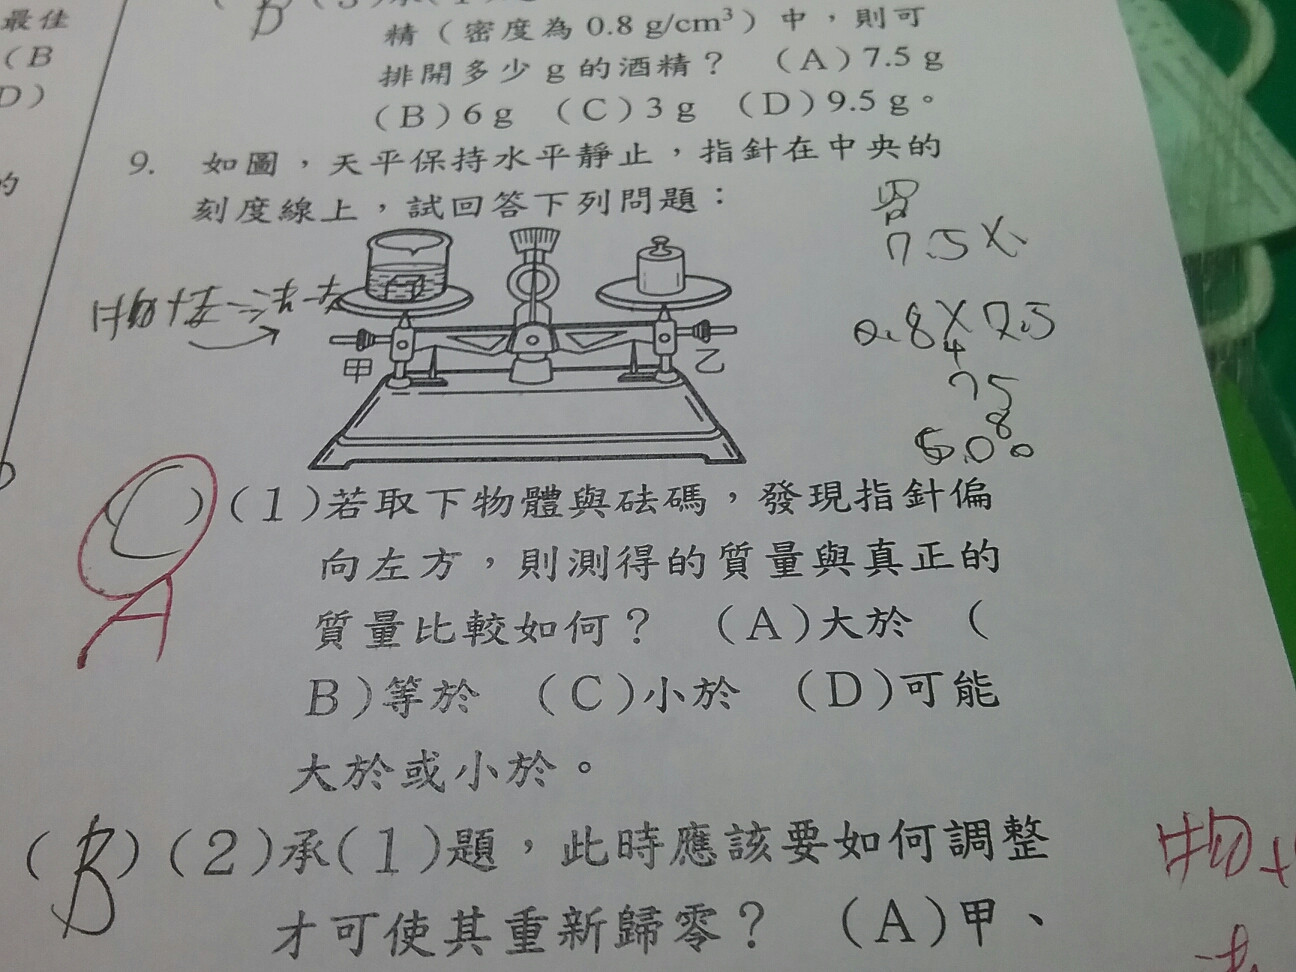 最佳
(B
D)
的
精(密度為0.8 g/cm³)中,則可
排開多少g的酒精? (A)7.5 g
(B)6 g (C)3 g (D)9.5 g。
9. 如圖,天平保持水平靜止,指針在中央的
刻度線上,試回答下列問題:
7.5 X
0.8X7.5
4
75
8
甲
乙
(C)(1)若取下物體與砝碼,發現指針偏
A
向左方,則測得的質量與真正的
質量比較如何? (A)大於 (
B)等於 (C)小於 (D)可能
大於或小於。
(B)(2)承(1)題,此時應該要如何調整
才可使其重新歸零? (A)甲、
物+